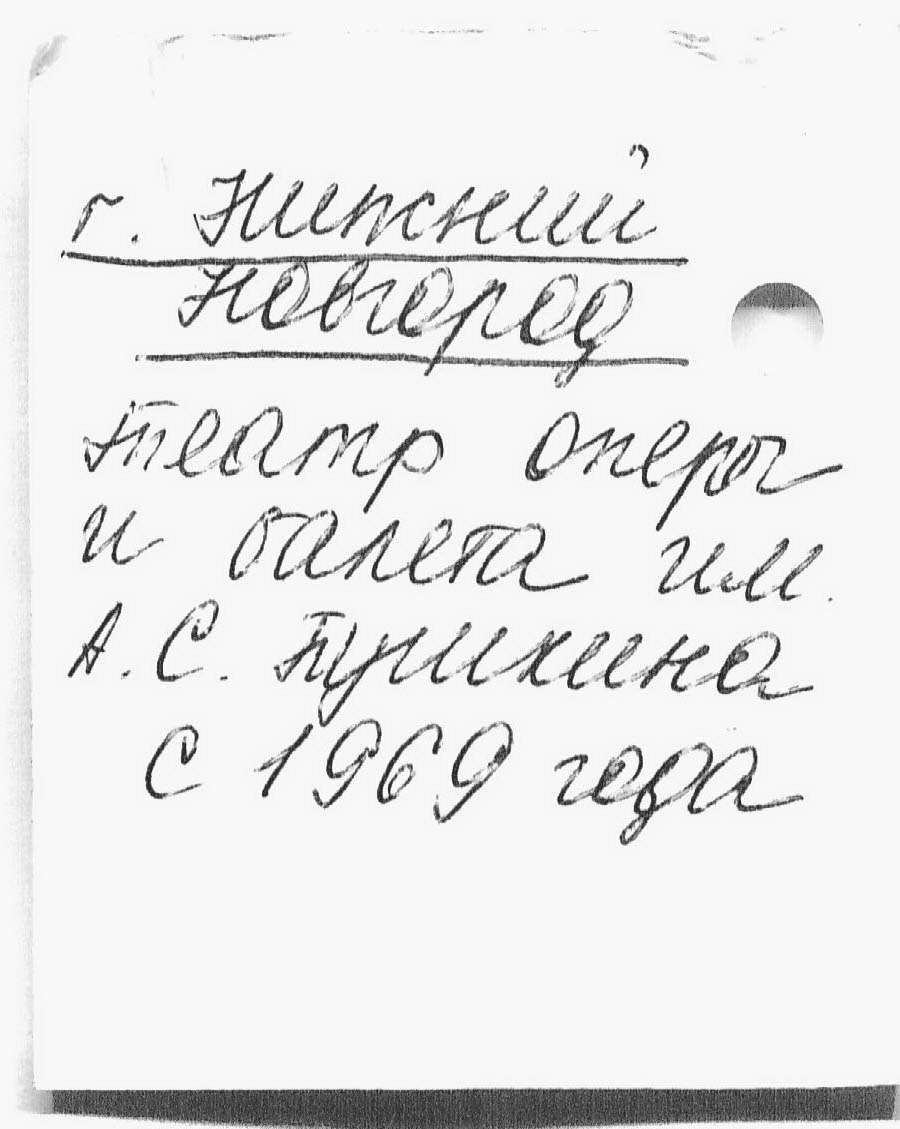 г. Нижний
Новгород
Театр оперы
и балета им.
А.С. Пушкина
с 1969 года